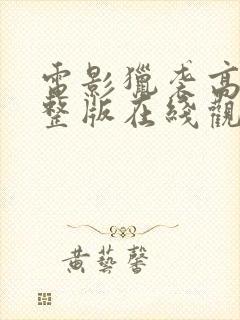 電影獵袭高
整版在綫觀
黄藝馨